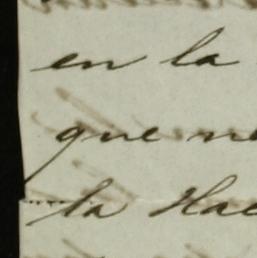 en la
que ne
la Hac